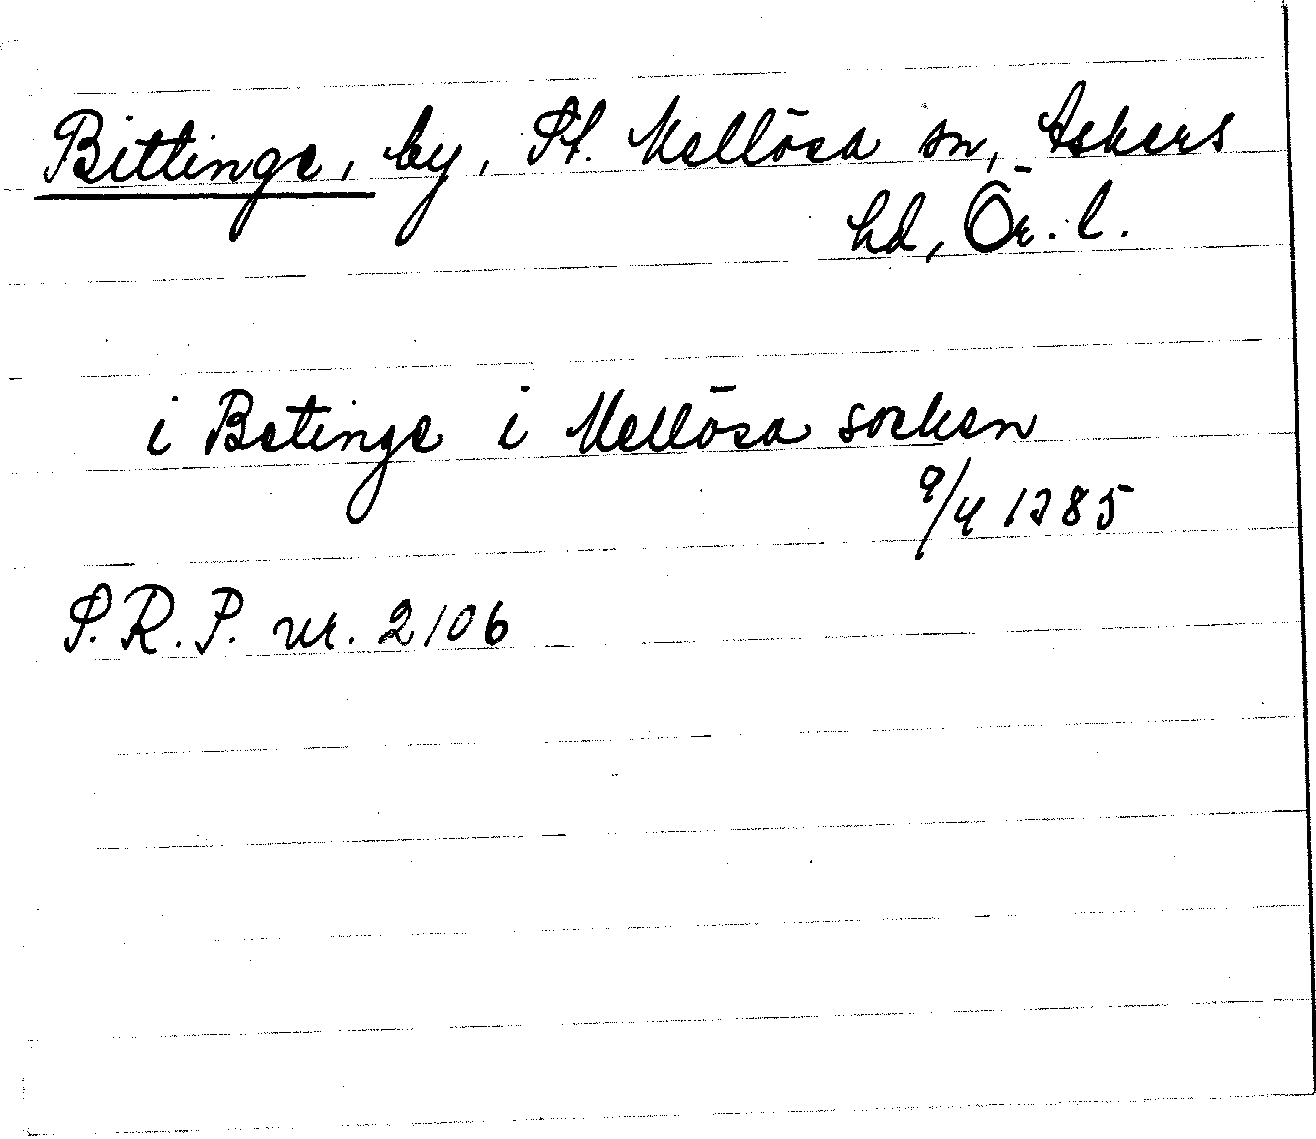 Bittinge, by, St. Mellösa sn, Askers
hd, Ör. l.
i Betinge i Mellösa socken
9/4 1385
S.R.P. nr. 2106